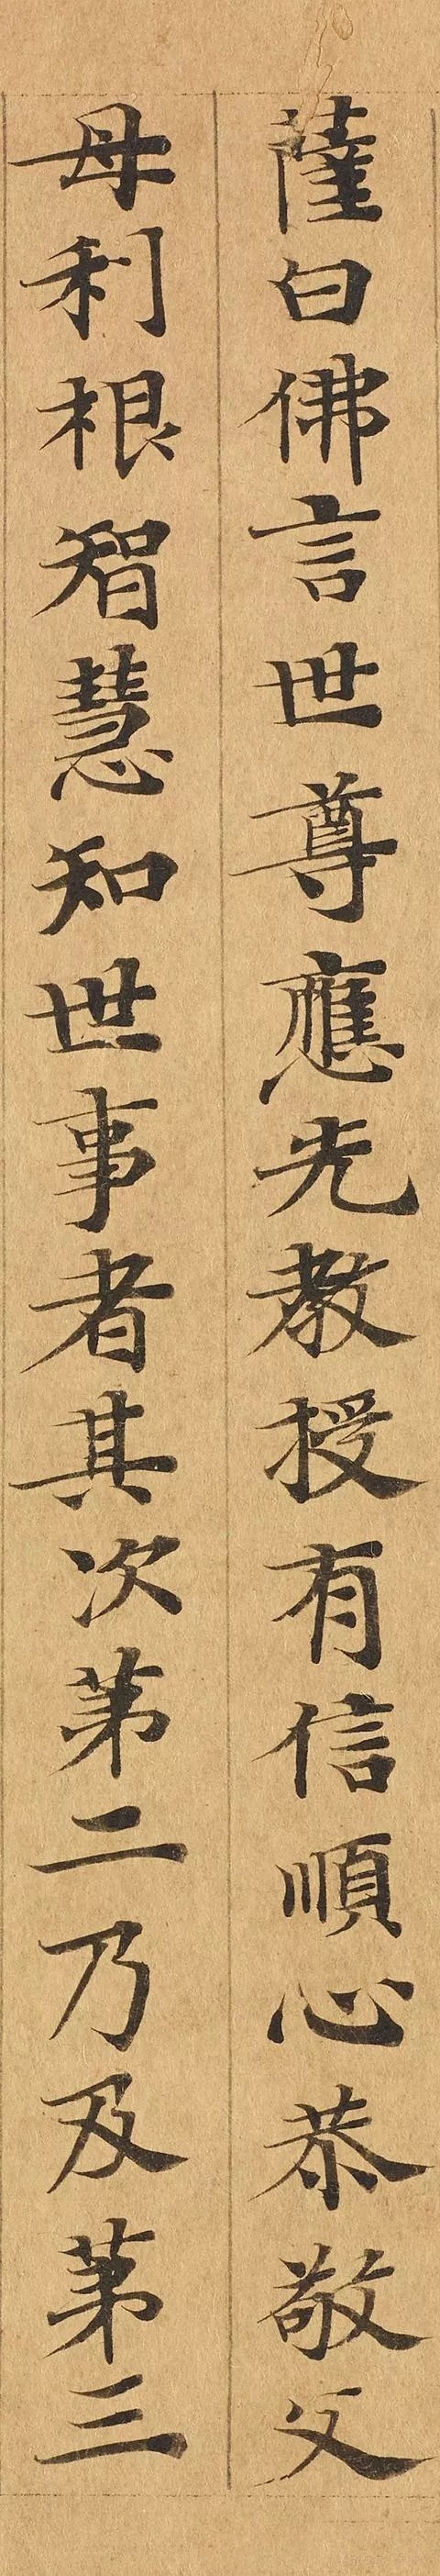 薩曰佛言世尊應先教授有信順心恭敬父
母利根智慧知世事者其次第二乃及第三